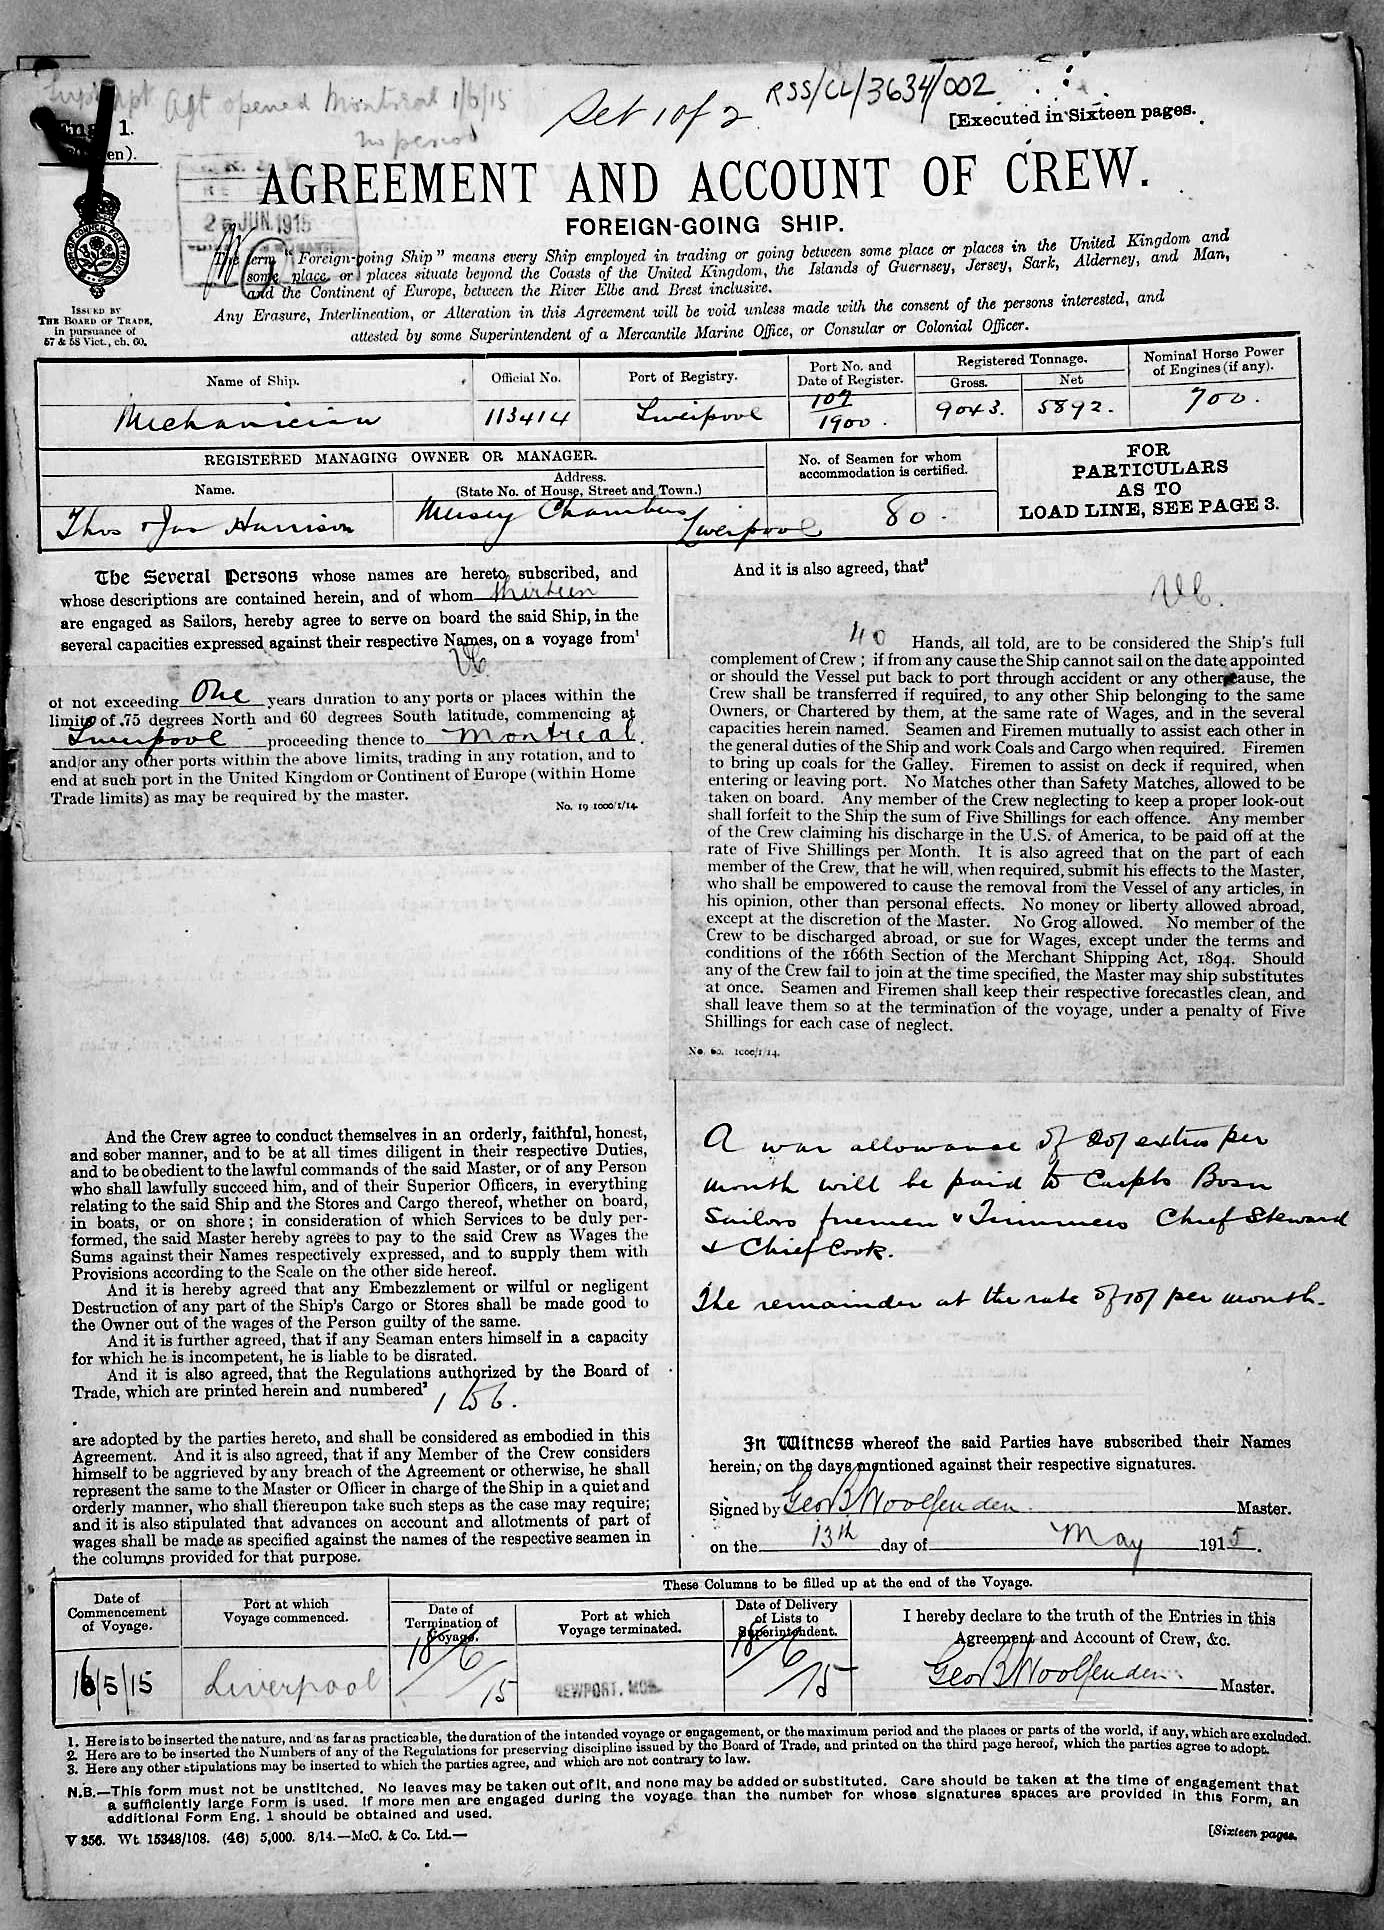 Agt opened Montreal 1/6/15
no period
Set 1 of 2
RSS/CL/3634/002
[Executed in Sixteen pages.
Eng. 1.
AGREEMENT AND ACCOUNT OF CREW.
25 JUN. 1915
FOREIGN-GOING SHIP.
The term "Foreign-going Ship" means every Ship employed in trading or going between some place or places in the United Kingdom and
some place or places situate beyond the Coasts of the United Kingdom, the Islands of Guernsey, Jersey, Sark, Alderney, and Man,
and the Continent of Europe, between the River Elbe and Brest inclusive.
Any Erasure, Interlineation, or Alteration in this Agreement will be void unless made with the consent of the persons interested, and
attested by some Superintendent of a Mercantile Marine Office, or Consular or Colonial Officer.
ISSUED BY
THE BOARD OF TRADE,
in pursuance of
57 & 58 Vict., ch. 60.
Name of Ship.
Official No.
Port of Registry.
Port No. and
Date of Register.
Registered Tonnage.
Gross.
Net
Nominal Horse Power
of Engines (if any).
Mechanician
113414
Liverpool
107
1900.
9043.
5892.
700.
REGISTERED MANAGING OWNER OR MANAGER.
Name.
Address.
(State No. of House, Street and Town.)
No. of Seamen for whom
accommodation is certified.
FOR
PARTICULARS
AS TO
LOAD LINE, SEE PAGE 3.
Thos & Jas Harrison
Mersey Chambers
Liverpool
80.
The Several Persons whose names are hereto subscribed, and
whose descriptions are contained herein, and of whom thirteen
are engaged as Sailors, hereby agree to serve on board the said Ship, in the
several capacities expressed against their respective Names, on a voyage from¹
of not exceeding One years duration to any ports or places within the
limits of 75 degrees North and 60 degrees South latitude, commencing at
Liverpool proceeding thence to Montreal.
and/or any other ports within the above limits, trading in any rotation, and to
end at such port in the United Kingdom or Continent of Europe (within Home
Trade limits) as may be required by the master.
No. 19 1000/1/14.
And the Crew agree to conduct themselves in an orderly, faithful, honest,
and sober manner, and to be at all times diligent in their respective Duties,
and to be obedient to the lawful commands of the said Master, or of any Person
who shall lawfully succeed him, and of their Superior Officers, in everything
relating to the said Ship and the Stores and Cargo thereof, whether on board,
in boats, or on shore; in consideration of which Services to be duly per-
formed, the said Master hereby agrees to pay to the said Crew as Wages the
Sums against their Names respectively expressed, and to supply them with
Provisions according to the Scale on the other side hereof.
And it is hereby agreed that any Embezzlement or wilful or negligent
Destruction of any part of the Ship's Cargo or Stores shall be made good to
the Owner out of the wages of the Person guilty of the same.
And it is further agreed, that if any Seaman enters himself in a capacity
for which he is incompetent, he is liable to be disrated.
And it is also agreed, that the Regulations authorized by the Board of
Trade, which are printed herein and numbered²
1 to 6.
are adopted by the parties hereto, and shall be considered as embodied in this
Agreement. And it is also agreed, that if any Member of the Crew considers
himself to be aggrieved by any breach of the Agreement or otherwise, he shall
represent the same to the Master or Officer in charge of the Ship in a quiet and
orderly manner, who shall thereupon take such steps as the case may require;
and it is also stipulated that advances on account and allotments of part of
wages shall be made as specified against the names of the respective seamen in
the columns provided for that purpose.
And it is also agreed, that³
40 Hands, all told, are to be considered the Ship's full
complement of Crew; if from any cause the Ship cannot sail on the date appointed
or should the Vessel put back to port through accident or any other cause, the
Crew shall be transferred if required, to any other Ship belonging to the same
Owners, or Chartered by them, at the same rate of Wages, and in the several
capacities herein named. Seamen and Firemen mutually to assist each other in
the general duties of the Ship and work Coals and Cargo when required. Firemen
to bring up coals for the Galley. Firemen to assist on deck if required, when
entering or leaving port. No Matches other than Safety Matches, allowed to be
taken on board. Any member of the Crew neglecting to keep a proper look-out
shall forfeit to the Ship the sum of Five Shillings for each offence. Any member
of the Crew claiming his discharge in the U.S. of America, to be paid off at the
rate of Five Shillings per Month. It is also agreed that on the part of each
member of the Crew, that he will, when required, submit his effects to the Master,
who shall be empowered to cause the removal from the Vessel of any articles, in
his opinion, other than personal effects. No money or liberty allowed abroad,
except at the discretion of the Master. No Grog allowed. No member of the
Crew to be discharged abroad, or sue for Wages, except under the terms and
conditions of the 166th Section of the Merchant Shipping Act, 1894. Should
any of the Crew fail to join at the time specified, the Master may ship substitutes
at once. Seamen and Firemen shall keep their respective forecastles clean, and
shall leave them so at the termination of the voyage, under a penalty of Five
Shillings for each case of neglect.
No. 60. 1000/1/14.
A war allowance of 20/ extra per
month will be paid to Carptr Bosn
Sailors firemen & Trimmers Chief Steward
& Chief Cook.
The remainder at the rate of 10/ per month.
In Witness whereof the said Parties have subscribed their Names
herein, on the days mentioned against their respective signatures.
Signed by Geo B Woolfenden Master.
on the 13th day of May 1915.
Date of
Commencement
of Voyage.
Port at which
Voyage commenced.
These Columns to be filled up at the end of the Voyage.
Date of
Termination of
Voyage.
Port at which
Voyage terminated.
Date of Delivery
of Lists to
Superintendent.
I hereby declare to the truth of the Entries in this
Agreement and Account of Crew, &c.
16/5/15
Liverpool
18/6/15
NEWPORT. MON.
18/6/15
Geo B Woolfenden Master.
1. Here is to be inserted the nature, and as far as practicable, the duration of the intended voyage or engagement, or the maximum period and the places or parts of the world, if any, which are excluded.
2. Here are to be inserted the Numbers of any of the Regulations for preserving discipline issued by the Board of Trade, and printed on the third page hereof, which the parties agree to adopt.
3. Here any other stipulations may be inserted to which the parties agree, and which are not contrary to law.
N.B.—This form must not be unstitched. No leaves may be taken out of it, and none may be added or substituted. Care should be taken at the time of engagement that
a sufficiently large Form is used. If more men are engaged during the voyage than the number for whose signatures spaces are provided in this Form, an
additional Form Eng. 1 should be obtained and used.
V 356. Wt. 15348/108. (46) 5,000. 8/14.—McC. & Co. Ltd.—
[Sixteen pages.